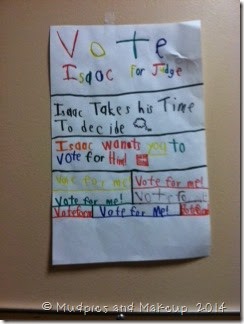 Vote
Isaac for Judge
Isaac Takes his Time
To decide
Isaac wants you to
vote for Him!
Vote for me! Vote for me!
Vote for me! Vote for
Vote for me!
© Mudpies and Makeup 2014